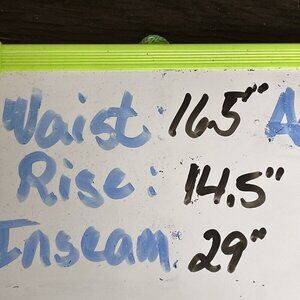 Waist: 16.5"
Rise: 14.5"
Inseam 29"